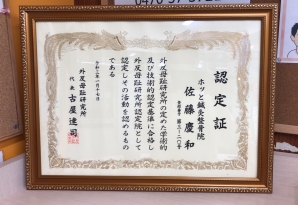 認定証
ホッと鍼灸整骨院
佐藤慶和
外反母趾研究所の定めた学術的
及び技術的認定基準に合格し
外反母趾研究所認定院として
認定しその活動を認めるもの
である
外反母趾研究所
代表 古屋達司